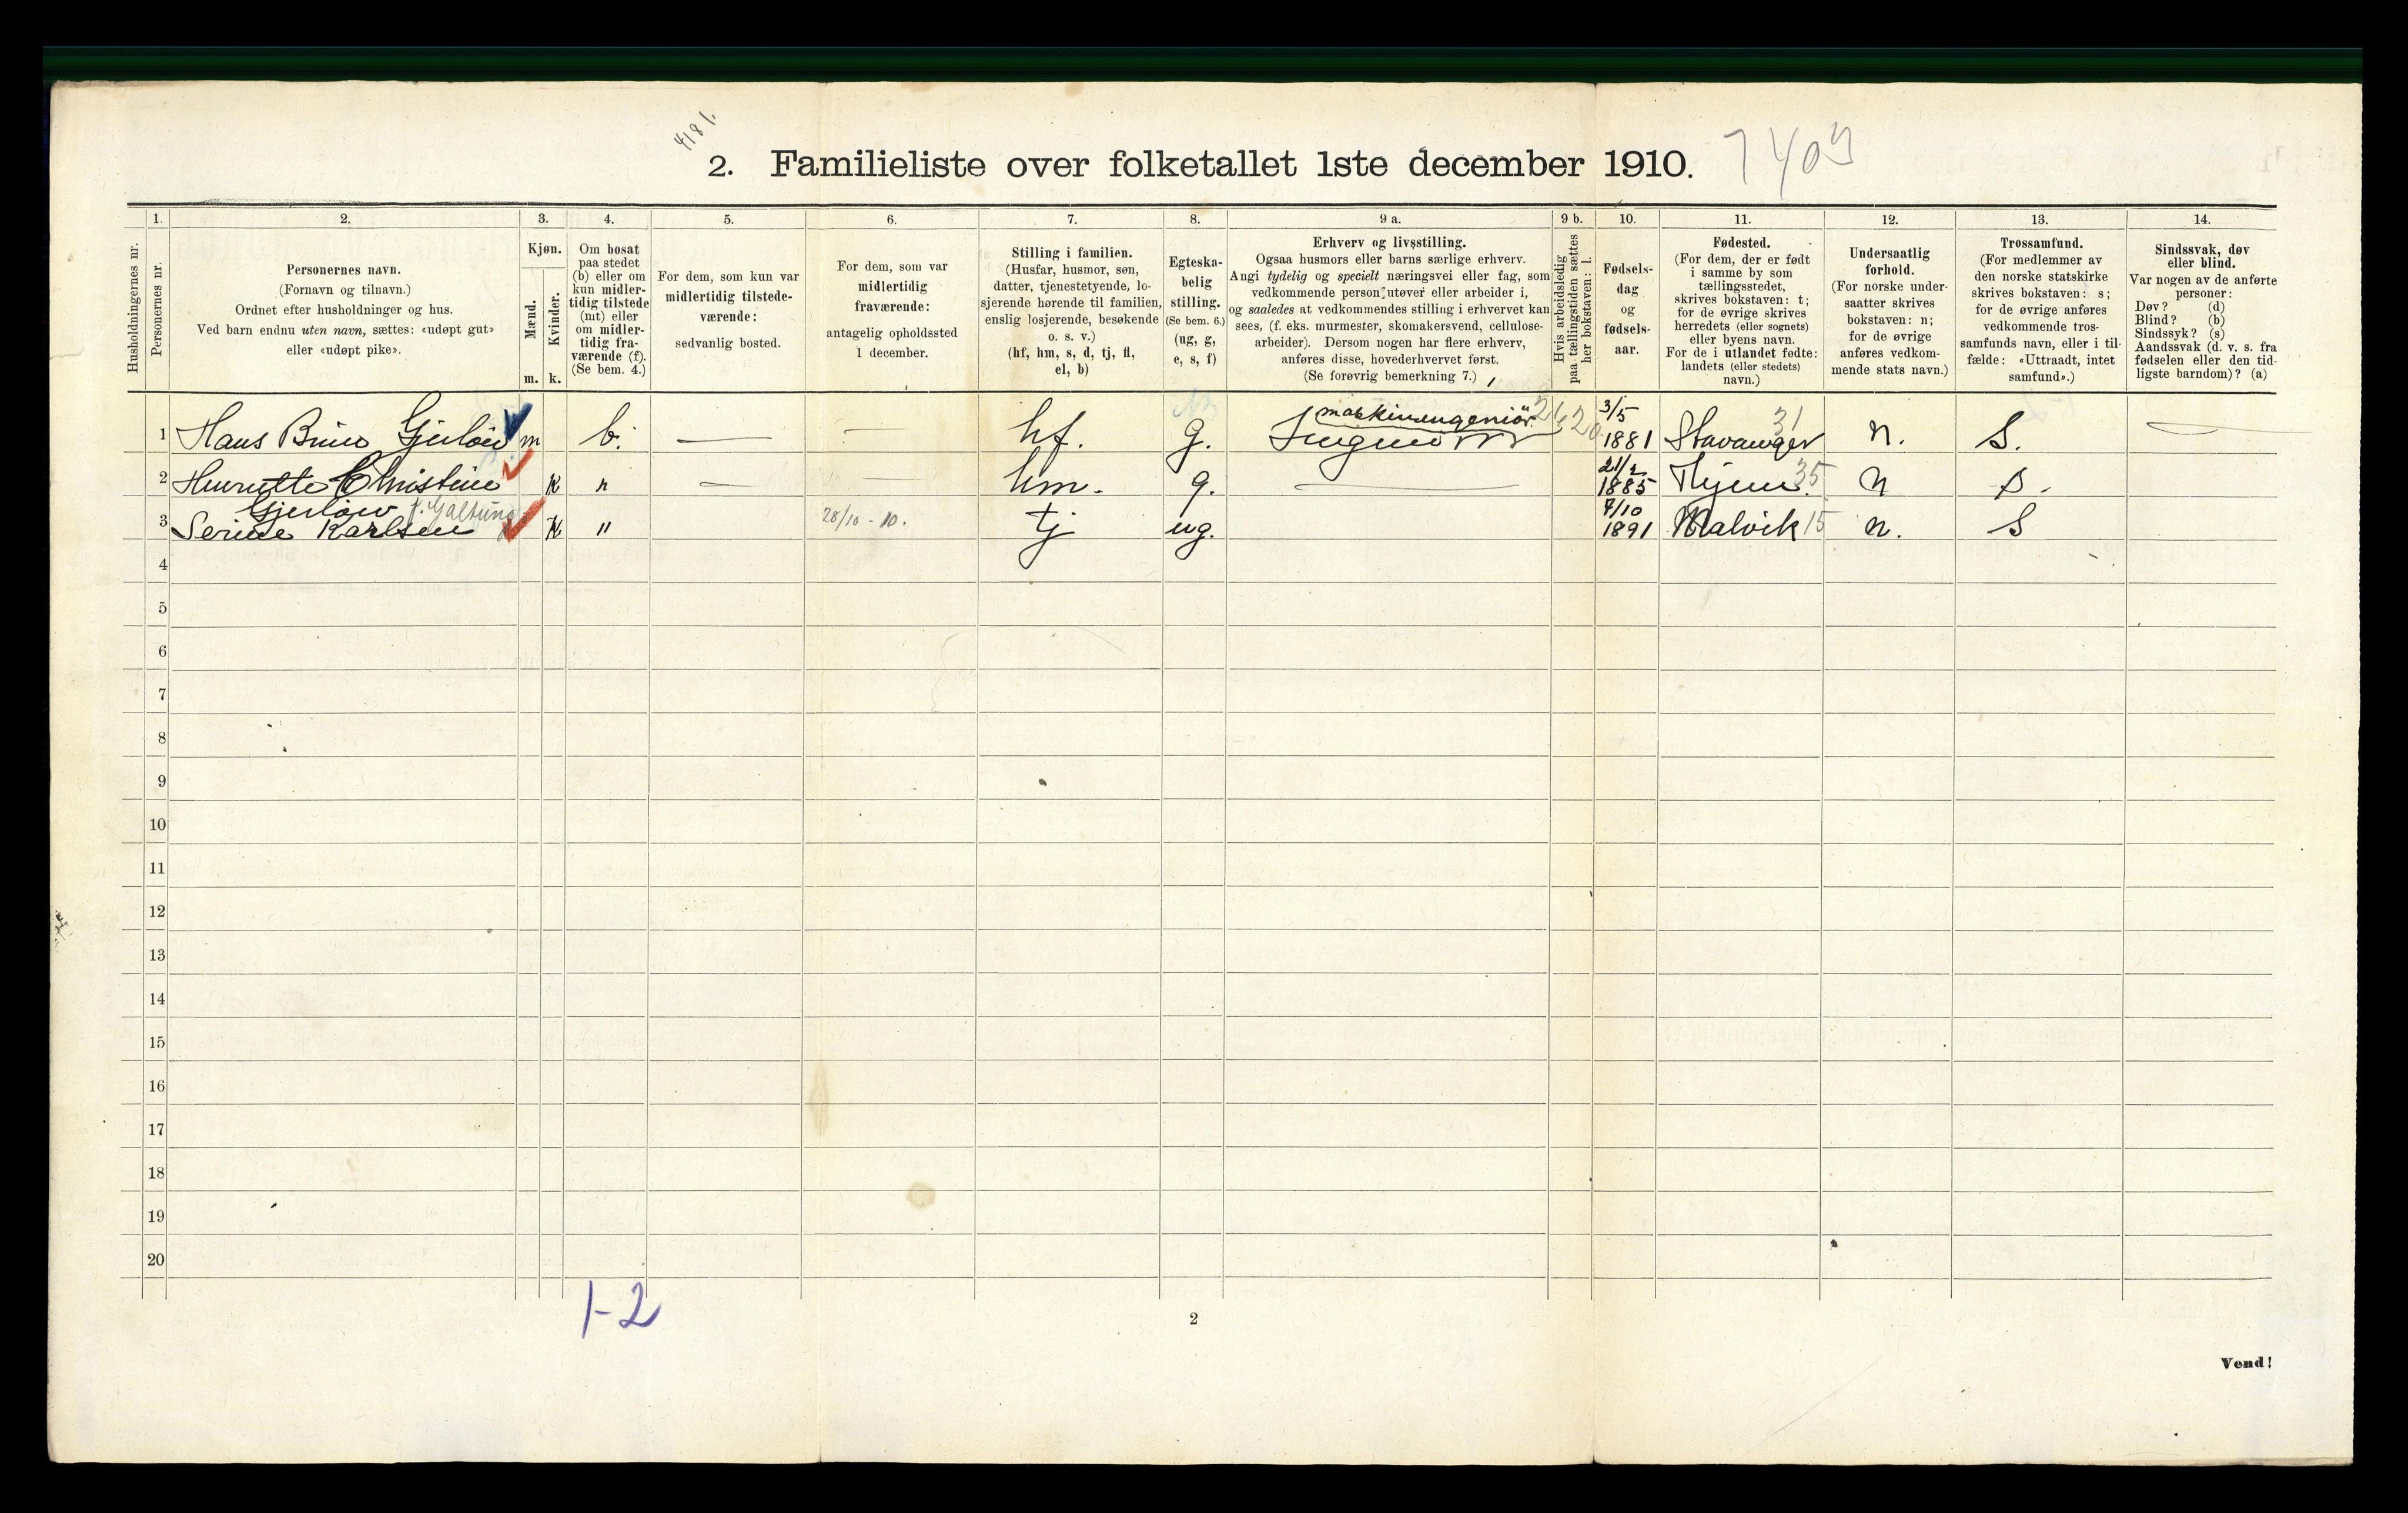 4181.
2. Familieliste over folketallet 1ste december 1910. 7409
Husholdningernes nr.
1. Personernes nr.
2.
Personernes navn.
(Fornavn og tilnavn.)
Ordnet efter husholdninger og hus.
Ved barn endnu uten navn, sættes: «udøpt gut»
eller «udøpt pike».
3.
Kjøn.
Mænd. Kvinder.
m. k.
4.
Om bosat
paa stedet
(b) eller om
kun midler-
tidig tilstede
(mt) eller
om midler-
tidig fra-
værende (f).
(Se bem. 4.)
5.
For dem, som kun var
midlertidig tilstede-
værende:
sedvanlig bosted.
6.
For dem, som var
midlertidig
fraværende:
antagelig opholdssted
1 december.
7.
Stilling i familien.
(Husfar, husmor, søn,
datter, tjenestetyende, lo-
sjerende hørende til familien,
enslig losjerende, besøkende
o. s. v.)
(hf, hm, s, d, tj, fl,
el, b)
8.
Egteska-
belig
stilling.
(Se bem. 6.)
(ug, g,
e, s, f)
9 a.
Erhverv og livsstilling.
Ogsaa husmors eller barns særlige erhverv.
Angi tydelig og specielt næringsvei eller fag, som
vedkommende person utøver eller arbeider i,
og saaledes at vedkommendes stilling i erhvervet kan
sees, (f. eks. murmester, skomakersvend, cellulose-
arbeider). Dersom nogen har flere erhverv,
anføres disse, hovederhvervet først.
(Se forøvrig bemerkning 7.)
9 b.
Hvis arbeidsledig
paa tællingstiden sættes
her bokstaven: l.
10.
Fødsels-
dag
og
fødsels-
aar.
11.
Fødested.
(For dem, der er født
i samme by som
tællingsstedet,
skrives bokstaven: t;
for de øvrige skrives
herredets (eller sognets)
eller byens navn.
For de i utlandet fødte:
landets (eller stedets)
navn.)
12.
Undersaatlig
forhold.
(For norske under-
saatter skrives
bokstaven: n;
for de øvrige
anføres vedkom-
mende stats navn.)
13.
Trossamfund.
(For medlemmer av
den norske statskirke
skrives bokstaven: s;
for de øvrige anføres
vedkommende tros-
samfunds navn, eller i til-
fælde: «Uttraadt, intet
samfund».)
14.
Sindssvak, døv
eller blind.
Var nogen av de anførte
personer:
Døv? (d)
Blind? (b)
Sindssyk? (s)
Aandssvak (d. v. s. fra
fødselen eller den tid-
ligste barndom)? (a)
1 Hans Bruno Gjerløw m b. — — hf. g. maskiningeniör 3/5 1881 Stavanger 31 n. S. —
2 Henriette Christine Gjerløw f. Galtung k " — — hm. g. — 21/2 1885 35 n s.
3 Serine Karlsen k " 28/10 - 10. tj ug. 7/10 1891 Malvik 15 n. S
4
5
6
7
8
9
10
11
12
13
14
15
16
17
18
19
20
1-2
2
Vend!